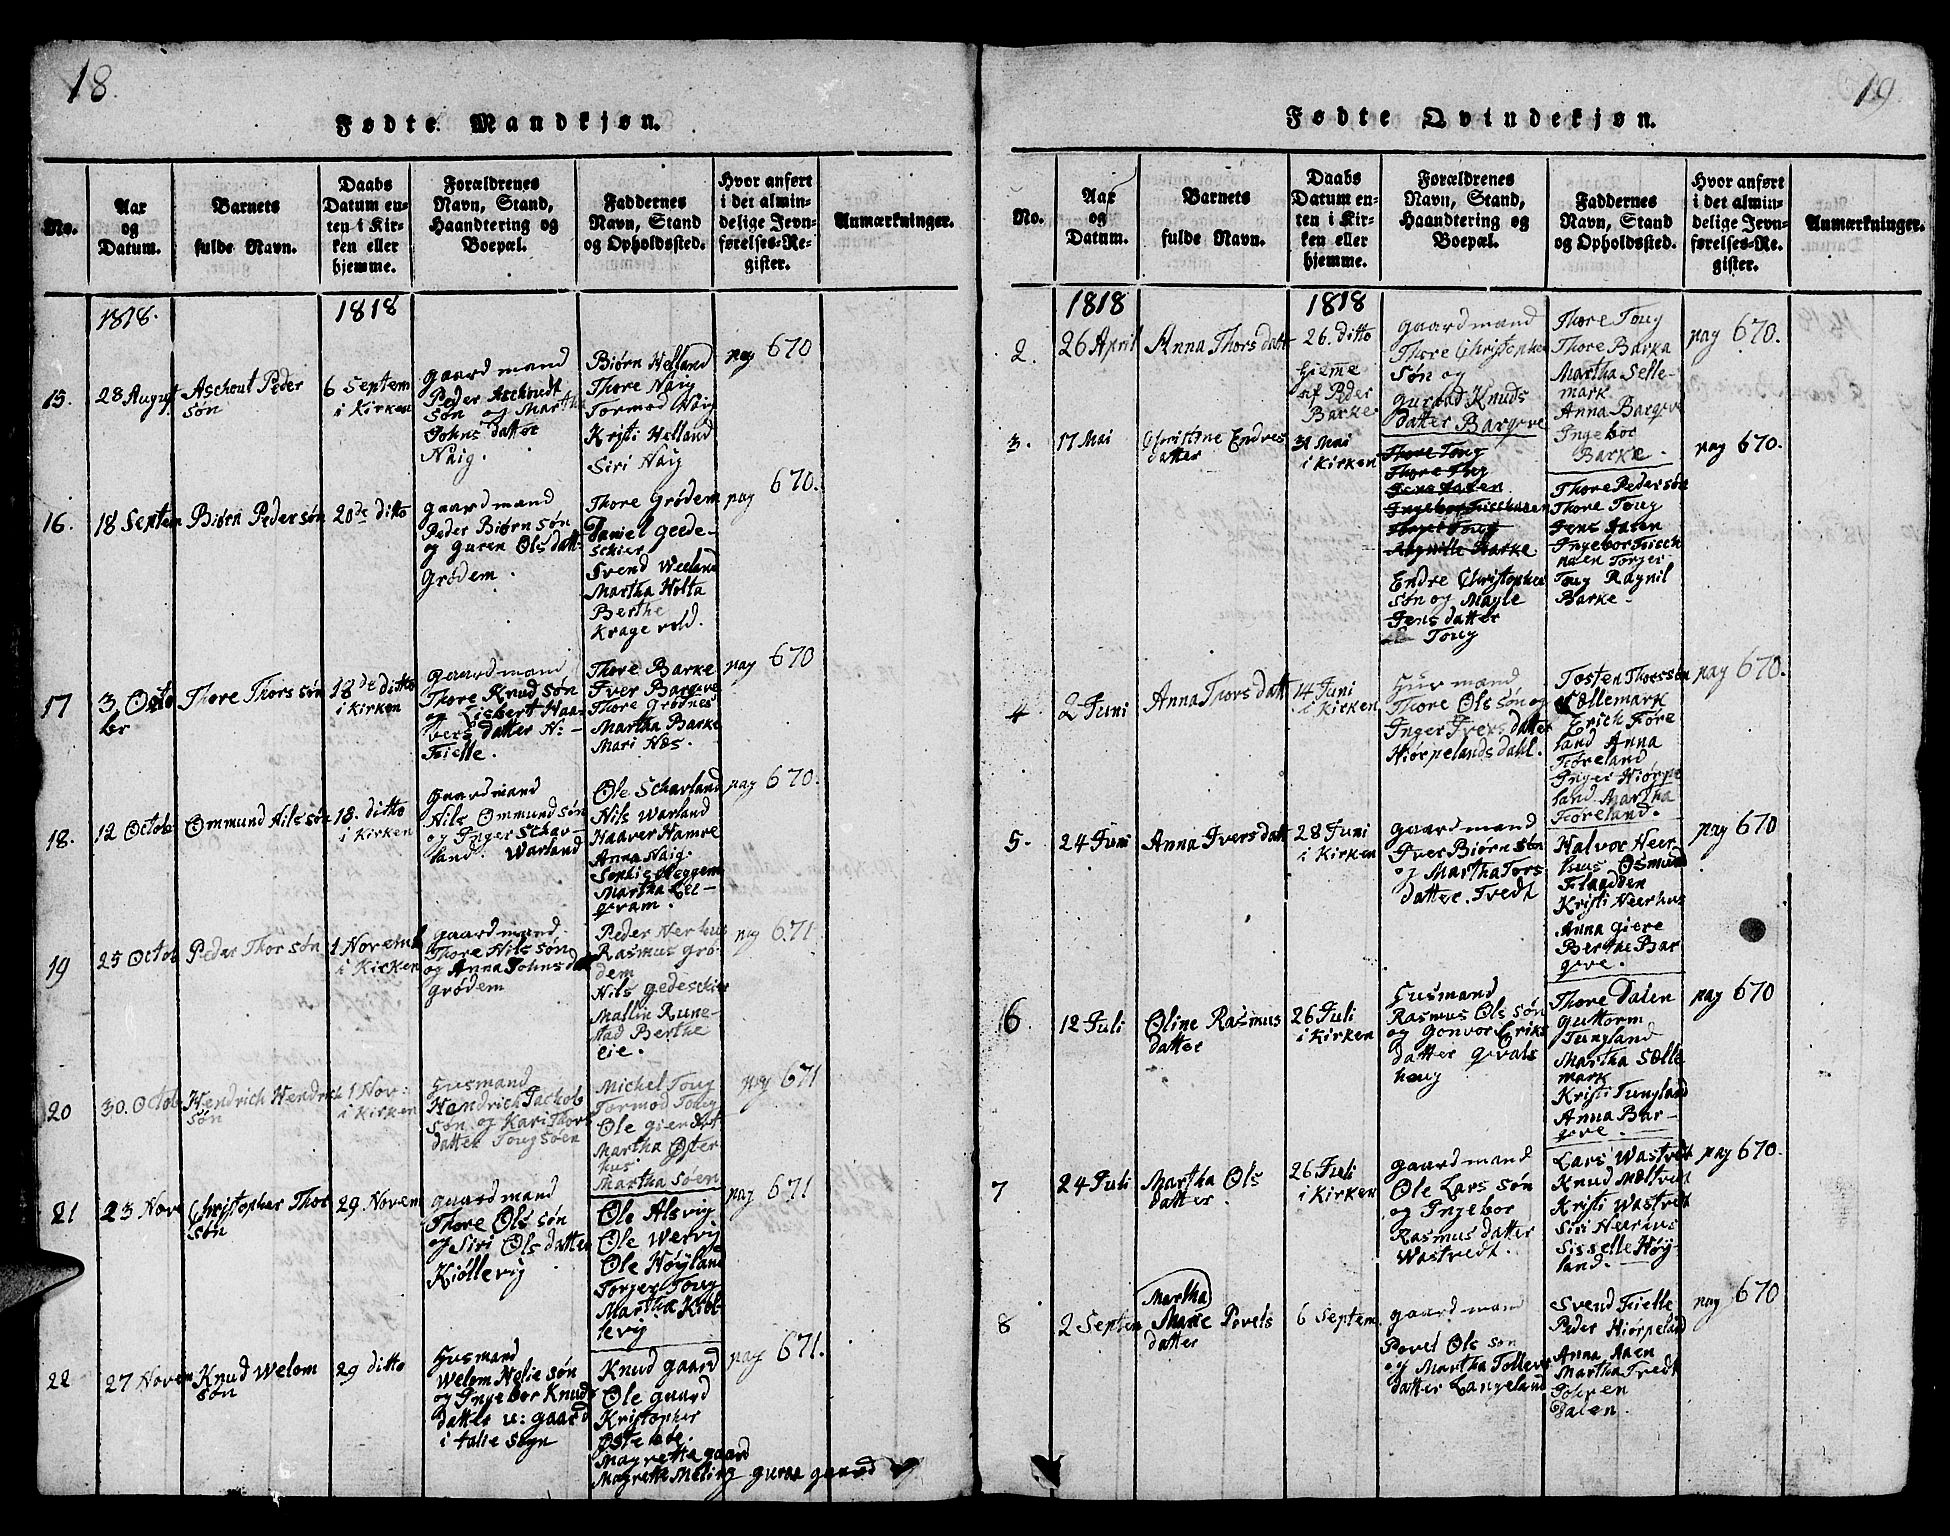 18.
Fødte Mandkjøn.
No.
Aar
og
Datum.
Barnets
fulde Navn.
Daabs
Datum en-
ten i Kir-
ken eller
hjemme.
Forældrenes
Navn, Stand,
Haandtering og
Boepæl.
Faddernes
Navn, Stand
og Opholdssted.
Hvor anført
i det almin-
delige Jevn-
førelses-Re-
gister.
Anmærkninger.
1818.
1818
15.
28 August
Aschout Peder
søn
6 Septem
i Kirken
gaardmand
Peder Aschoudt
søn og Martha
Johns datter
Naig.
Biørn Helland
Thore Naig
Tormod Naig
Kristi Helland
Siri Naig
pag 670
16.
18 Septem
Biørn Pedersøn
20de ditto
gaardmand
Peder Biørnsøn
og Guren Ols datt
Grødem.
Thore Grødem
Daniel geede-
schier
Svend Weeland
Martha Holta
Berthe
Krage vold.
pag 670.
17
3. Octo
br
Thore Thorssøn
18de ditto
i Kirken
gaardmand
Thore Knudsøn
og Lisbert Haa-
vers datter N:-
Fielle.
Thore Barke
Iver Bargeve
Thore Grødnes
Martha Barke
Mari Næs.
pag 670
18.
12 Octob
Ommund Nilssøn
18. ditto
i Kirken
gaardmand
Nils Ommundsøn
og Inger Schar-
land. Warland
Ole Scharland
Nils Warland
Haaver Hamre
Anna Naig.
Sophie Heggem
Martha Lel-
gram.
pag 670.
19
25 Octob
Peder Thorsøn
1 Novemb
i Kirken
gaardmand.
Thore Nilssøn
og Anna Johnsdat
grødem
Peder Nerhus
Rasmus Grø-
dem
Nils gedeschier
Mallin Rune-
stad Berthe
eie.
pag 671
20
30. Octob
Hendrich Hendrich
søn
1 Nov:
i Kirken
Husmand
Hendrich Jachob
søn og Kari Thors
datter Tougsøen
Michel Toug
Tormod Toug
Ole gierdet
Martha Øster
hus.
Martha søen
pag 671
21
23 Nove
Christopher Thor
søn
29 Novem
gaardmand
Thore Ols søn
og Siri Ols datter
Kiøllevig
Ole Alsvig
Ole Wervig
Ole Høyland
Torger Toug
Martha Kiøl-
levig
pag 671
22
27 Novem
Knud Welom
søn
29 ditto
Husmand
Welom Helie søn
og Ingebor Knuds
datter u: gaard
i talie sogn
Knud gaard
Ole gaard
Kristopher
Østebøe.
Magretta gaard
Magrethe Meling guroa gaard
pag 671.
19.
Fødte Qvindekjøn.
No.
Aar
og
Datum.
Barnets
fulde Navn.
Daabs
Datum en-
ten i Kir-
ken eller
hjemme.
Forældrenes
Navn, Stand,
Haandtering og
Boepæl.
Faddernes
Navn, Stand
og Opholdssted.
Hvor anført
i det almin-
delige Jevn-
førelses-Re-
gister.
Anmærkninger.
1818
1818
2.
26 April
Anna Thorsdatt
26. ditto
Hieme
af Peder
Barke
gaardmand
Thore Christopher
søn og
guraad Knuds
datter Bargeve
Thore Toug
Thore Barka
Martha Selle-
mark
Anna Bargeve
Ingebor
Barke.
pag 670.
3.
17 Mai
Christene Endres
datter
31 Mai
i Kirken
Thore Toug
Thore Toug
Jens Aaen
Torger Toug
Ragnille Barke
Endre Christopher
søn og Magle
Jens datter
Toug
Thore Pedersøn
Thore Toug
Jens Aaen
Ingebor Friseh
naen Torger
Toug Ragnil
Barke.
pag 670.
4
2 Juni
Anna Thorsdatt
14 Juni
i Kirken
Husmand
Thore Ols søn og
Inger Ivers datter
Hiørpelandsdahl.
Tosten Thorssøn
Sællemark
Erich Føre
land Anna
Føreland
Inger Hiørpe
land Martha
Føreland.
pag 670.
5.
24 Juni
Anna Iversdatt
28 Juni
i Kirken
gaardmand
Iver Biørnsøn
og Martha Tors
datter. Tvedt
Halvor Heer-
hus Osmund
Flaadden
Kristi Neerhus
Anna giere
Berthe Bar
geve.
pag 670
6
12 Juli
Oline Rasmus
datter
26 Juli
i Kirken
Husmand
Rasmus Ols søn
og gonvor Eriks
datter gvals
houg
Thore Dalen
guttorm
Tungland
Martha Sælle
mark
Kristi Tungland
Anna Bar-
geve.
pag 670
7
24 Juli
Martha Ols
datter.
26 Juli
i Kirken
gaardmand
Ole Lars søn
og Ingebor
Rasmus datter
Wastvedt.
Lars Wastvedt
Knud Mæltvedt
Kristi Wastvedt
Siri Neerhus
Sisselle Høy-
land.
pag 670.
8
2 Septem
Martha
Marie Povels
datter
6 Septem.
gaardmand
Povel Ols søn
og Martha Tollevs
datter Langeland
Svend Fielle
Peder Hiørpeland
Anna Aaen
Martha Tvedt
Johren
Dalen.
pag 670